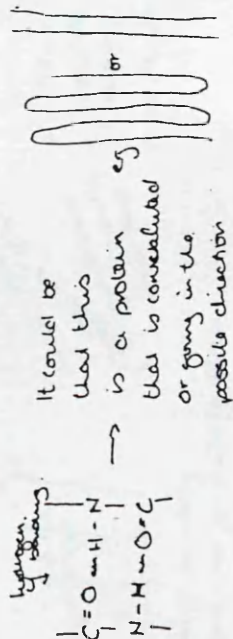 hydrogen
bonding.
C=O---H-N
N-H---O=C
It could be
that this
is a protein
that is
or going in the
possile direction
eg
or